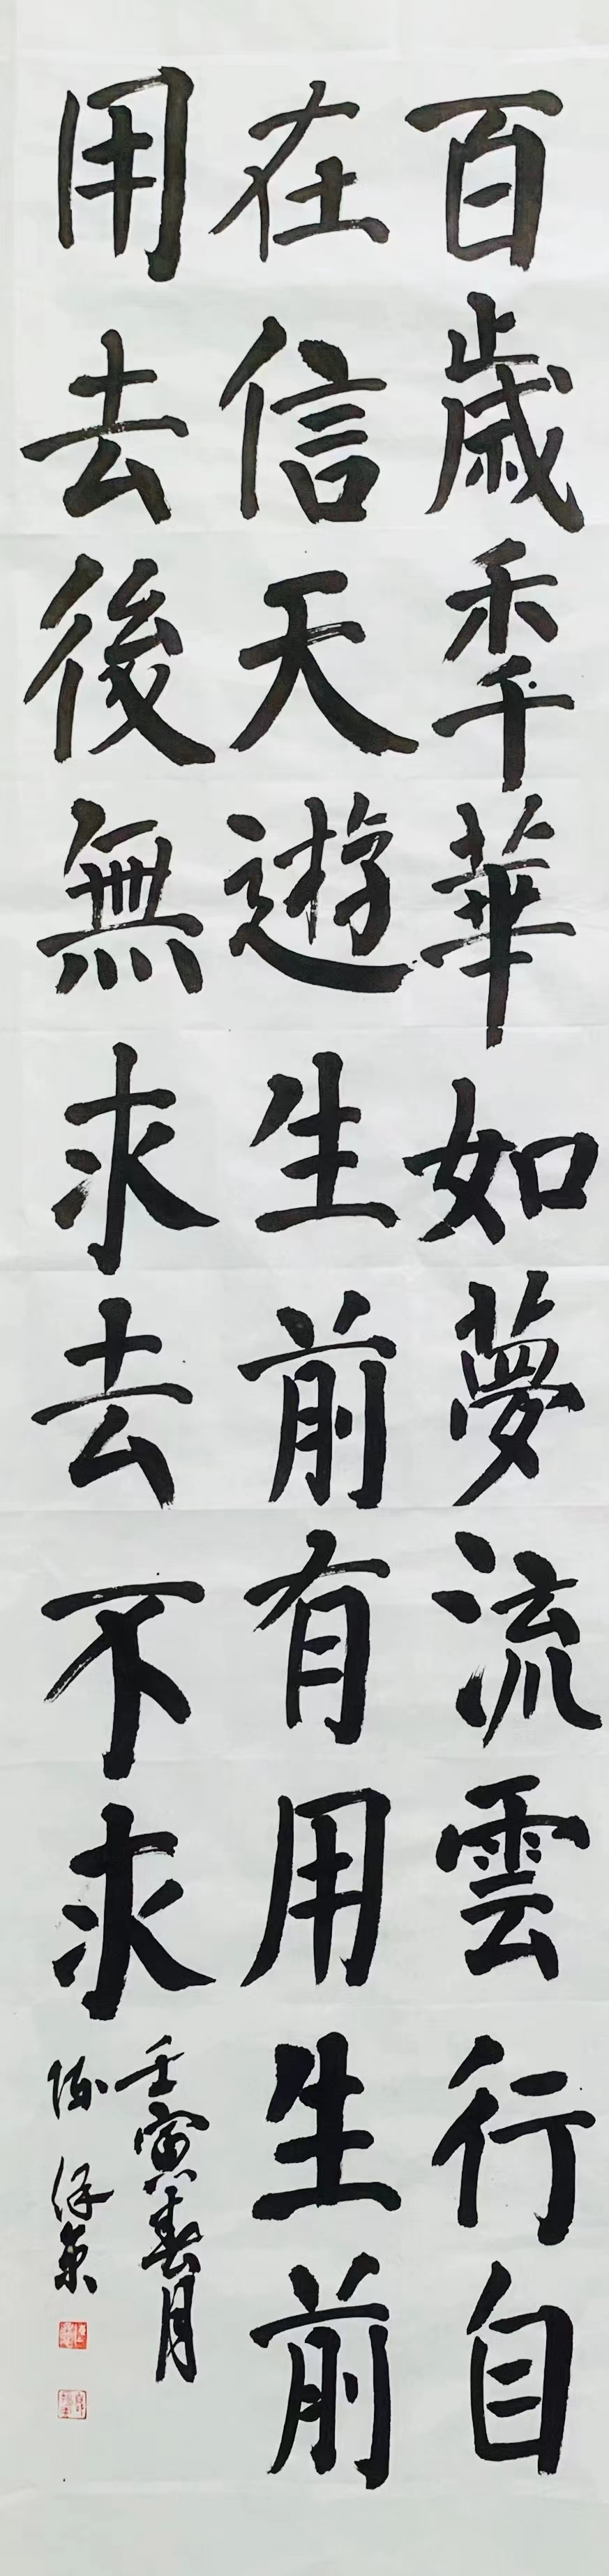 百歲秊華如夢流雲行自
在信天遊生前有用生前
用去後無求去不求
壬寅春月
陈